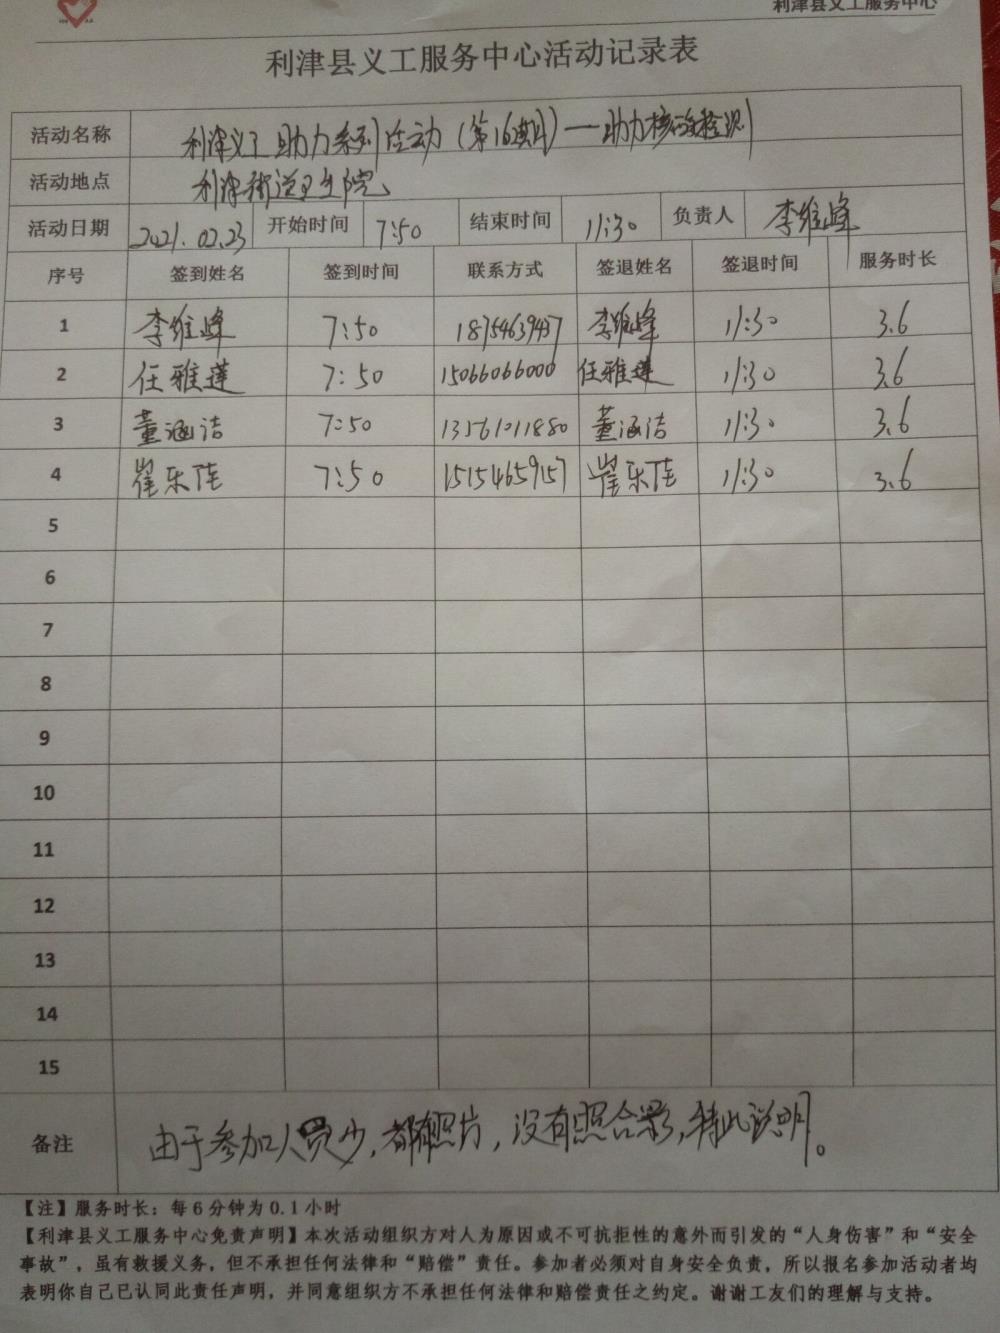 利津县义工服务中心
利津县义工服务中心活动记录表
活动名称 利津义工助力系列活动（第16期）—助力核酸检测
活动地点 利津街道卫生院
活动日期 2021.02.23 开始时间 7:50 结束时间 11:30 负责人 李维峰
序号 签到姓名 签到时间 联系方式 签退姓名 签退时间 服务时长
1 李维峰 7:50 18754639437 李维峰 11:30 3.6
2 任雅莲 7:50 15066066000 任雅莲 11:30 3.6
3 董涵洁 7:50 13561011880 董涵洁 11:30 3.6
4 崔乐佳 7:50 15154659157 崔乐佳 11:30 3.6
5
6
7
8
9
10
11
12
13
14
15
备注 由于参加人员少，都有照片，没有照合影，特此说明。
【注】服务时长：每6分钟为0.1小时
【利津县义工服务中心免责声明】本次活动组织方对人为原因或不可抗拒性的意外而引发的“人身伤害”和“安全
事故”，虽有救援义务，但不承担任何法律和“赔偿”责任。参加者必须对自身安全负责，所以报名参加活动者均
表明你自己已认同此责任声明，并同意组织方不承担任何法律和赔偿责任之约定。谢谢工友们的理解与支持。